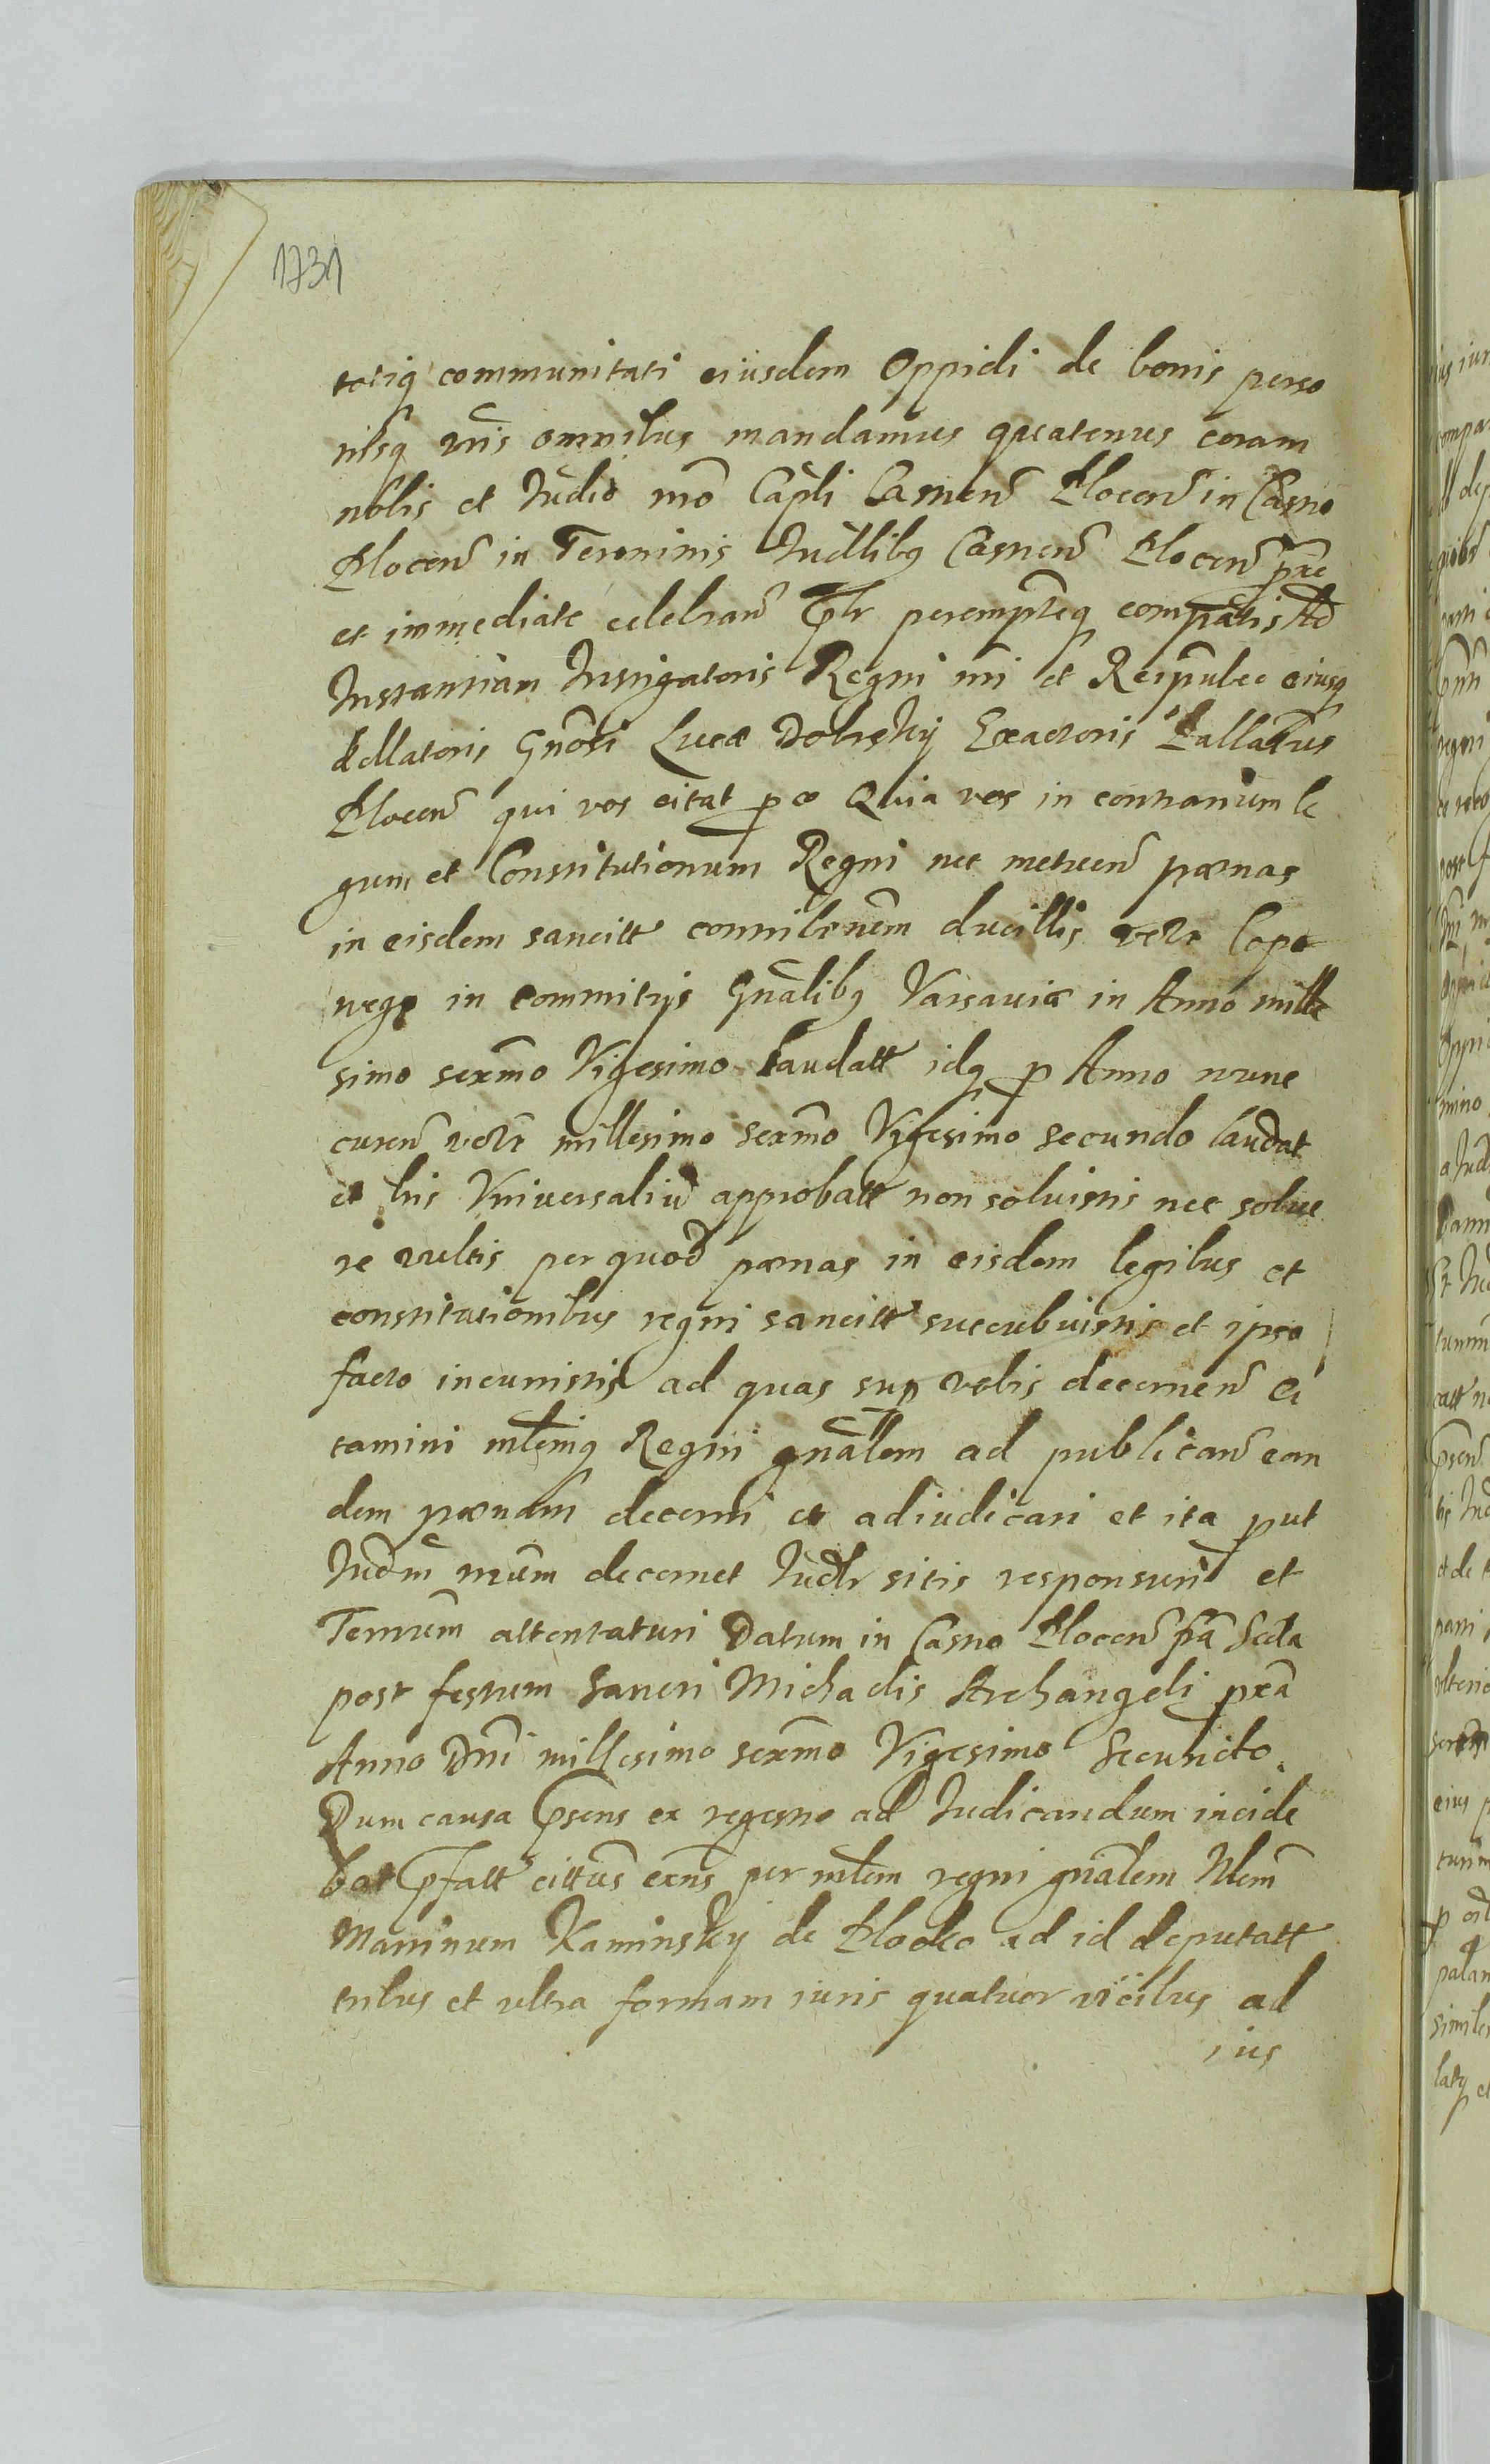 1731
totiq communitati eiusdem Oppidi de bonis perso
nibsq vris omnibus mandamus quatenus coram
nobis et Iudio nro Capli Castren Plocen in Castro
Plocen in Terminis Iudlibq Castren Plocen prae
et immediate celebran Tlr perempteq compatis Ad
Instantiam Instigatoris Regni nri et Reipublce eiusq
dellatoris Gnosi Lucæ Dobrsky Exactoris Pallatus
Plocen qui vos citat p eo Quia vos in contrarium le
gum et Constitutionum Regni nec metuen poenas
in eisdem sancitt contribnem ducillis velt Czopo
wego in commitijs Gnalibq Varsaviæ in Anno mille
simo sexmo Vigesimo laudatt idq p Anno nunc
curen velt millesimo sexmo Vigesimo secundo laudat
et lris Vniversaliu approbatt non solvistis nec solve
re vultis per quod poenas in eisdem legibus et
constitutionibus regni sancitt succubuistis et ipso
facto incurristis ad quas sup vobis decernen ci
tamini mtemq Regni gnalem ad publican ean
dem poenam decerni et adiudicari et ita put
Iudm nrum decernet Iudlr sitis responsuri et
Termum attentaturi Datum in Castro Plocen fra Scda
post festum Sancti Michaelis Archangeli prxa
Anno Dni millesimo sexmo Vigesimo Secundo.
Dum causa psens ex regestro ad Iudicandum incide
bat pfatt cittus exns per mtem regni gnalem Nlem
Martinum Kaminsky de Plocko ad id deputatt
tribus et ultra formam iuris quatuor vicibus ad
ius